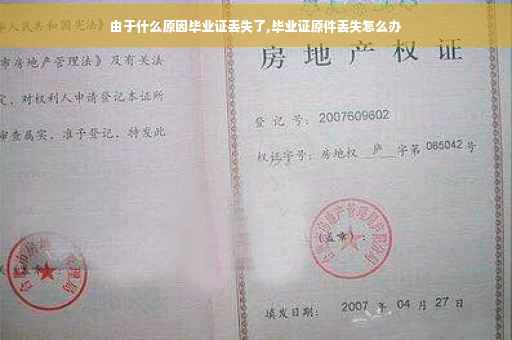 由于什么原因毕业证丢失了,毕业证原件丢失怎么办
华人民共和国宪法》及
市房地产管理法》及有关法
定，对权利人申请登记本证所
审查属实，准予登记，特发此
房地产权证
登记号：2007609602
权证字号：房地权 庐 字第 065042 号
(盖章)：
填发日期：2007 年 04 月 27 日